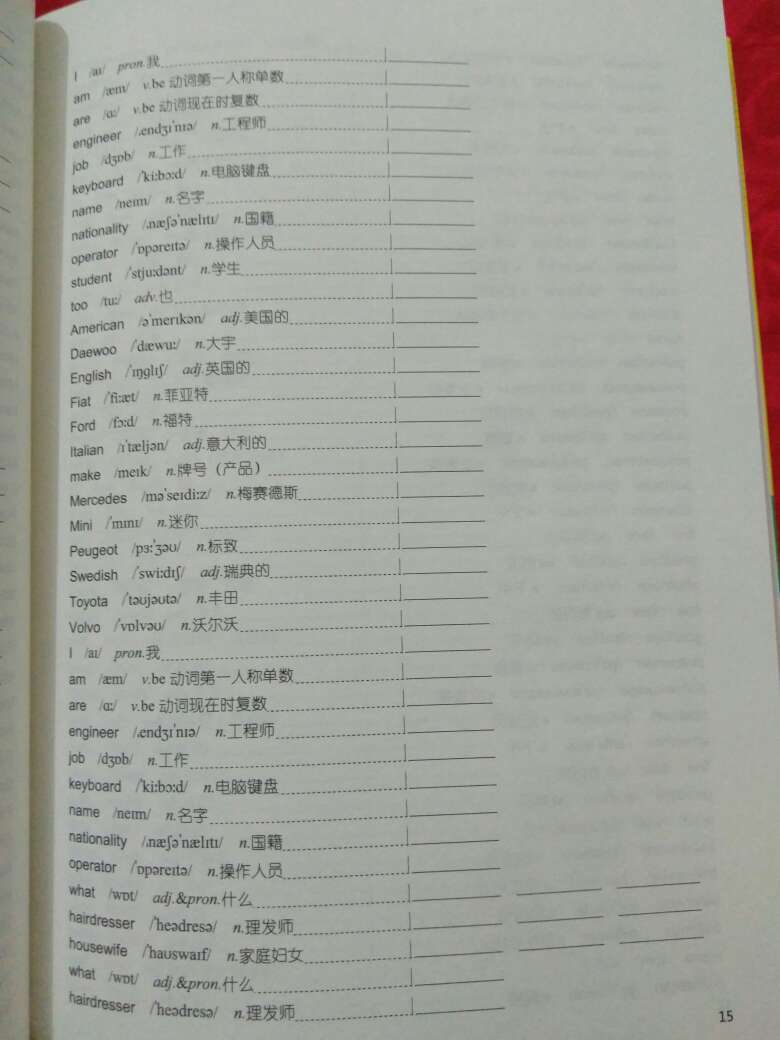 I /aɪ/ pron.我
am /æm/ v.be 动词第一人称单数
are /ɑː/ v.be 动词现在时复数
engineer /ˌendʒɪˈnɪə/ n.工程师
job /dʒɒb/ n.工作
keyboard /ˈkiːbɔːd/ n.电脑键盘
name /neɪm/ n.名字
nationality /ˌnæʃəˈnælɪtɪ/ n.国籍
operator /ˈɒpəreɪtə/ n.操作人员
student /ˈstjuːdənt/ n.学生
too /tuː/ adv.也
American /əˈmerɪkən/ adj.美国的
Daewoo /ˈdæwuː/ n.大宇
English /ˈɪŋglɪʃ/ adj.英国的
Fiat /ˈfiːæt/ n.菲亚特
Ford /fɔːd/ n.福特
Italian /ɪˈtæljən/ adj.意大利的
make /meɪk/ n.牌号（产品）
Mercedes /məˈseɪdiːz/ n.梅赛德斯
Mini /ˈmɪnɪ/ n.迷你
Peugeot /pɜːˈʒəʊ/ n.标致
Swedish /ˈswiːdɪʃ/ adj.瑞典的
Toyota /ˈtəʊjəʊtə/ n.丰田
Volvo /ˈvɒlvəʊ/ n.沃尔沃
I /aɪ/ pron.我
am /æm/ v.be 动词第一人称单数
are /ɑː/ v.be 动词现在时复数
engineer /ˌendʒɪˈnɪə/ n.工程师
job /dʒɒb/ n.工作
keyboard /ˈkiːbɔːd/ n.电脑键盘
name /neɪm/ n.名字
nationality /ˌnæʃəˈnælɪtɪ/ n.国籍
operator /ˈɒpəreɪtə/ n.操作人员
what /wɒt/ adj.&pron.什么
hairdresser /ˈheədresə/ n.理发师
housewife /ˈhaʊswaɪf/ n.家庭妇女
what /wɒt/ adj.&pron.什么
hairdresser /ˈheədresə/ n.理发师
15